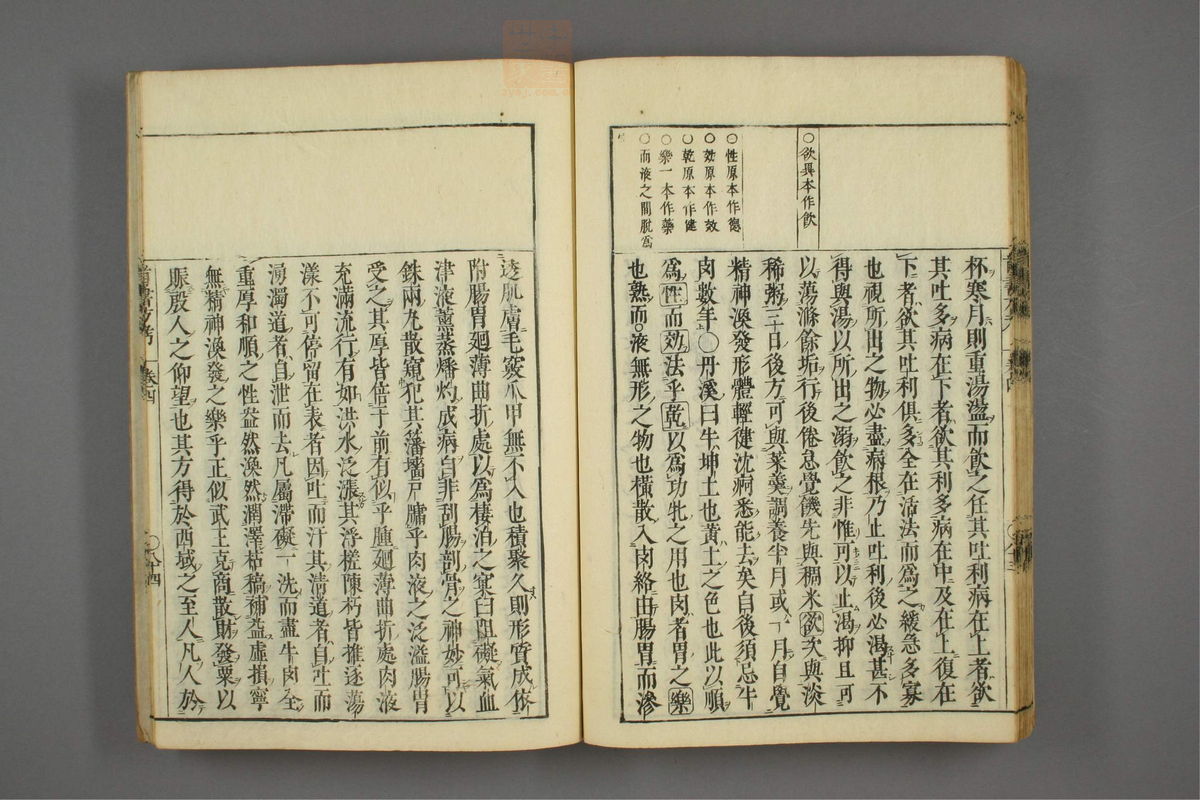 ○欲異本作飮
○性原本作德
○効原本作效
○乾原本作健
○樂一本作藥
○而液之間脫爲
杯寒月則重湯盪而飮之任其吐利病在上者欲
其吐多病在下者欲其利多病在中及在上復在
下者欲其吐利俱多全在活法而爲之緩急多寡
也視所出之物必盡病根乃止吐利後必渴甚不
得與湯以所出之溺飮之非惟可以止渴抑且可
以蕩滌餘垢行後倦息覺饑先與稠米欲次與淡
稀粥三日後方可與菜羹調養半月或一月自覺
精神渙發形體輕健沈痾悉能去矣自後須忌牛
肉數年○丹溪曰牛坤土也黃土之色也此以順
爲性而効法乎乾以爲功牝之用也肉者胃之樂
也熟而○液無形之物也橫散入肉絡由腸胃而滲
透肌膚毛竅爪甲無不入也積聚久則形質成依
附腸胃廻薄曲折處以爲棲泊之窠臼阻礙氣血
津液薰蒸燔灼成病自非刮腸剖骨之神妙可以
銖兩丸散窺犯其藩墻戸牖乎肉液之泛溢腸胃
受之其厚皆倍于前有似乎腫廻薄曲折處肉液
充滿流行有如洪水泛漲其浮槎陳朽皆推逐蕩
漾不可停留在表者因吐而汗其清道者自吐而
濁道者自泄而去凡屬滯礙一洗而盡牛肉全
重厚和順之性盎然渙然潤澤枯稿補益虛損寧
無精神渙發之樂乎正似武王克商散財發粟以
賑殷人之仰望也其方得於西域之至人凡人於
卷四